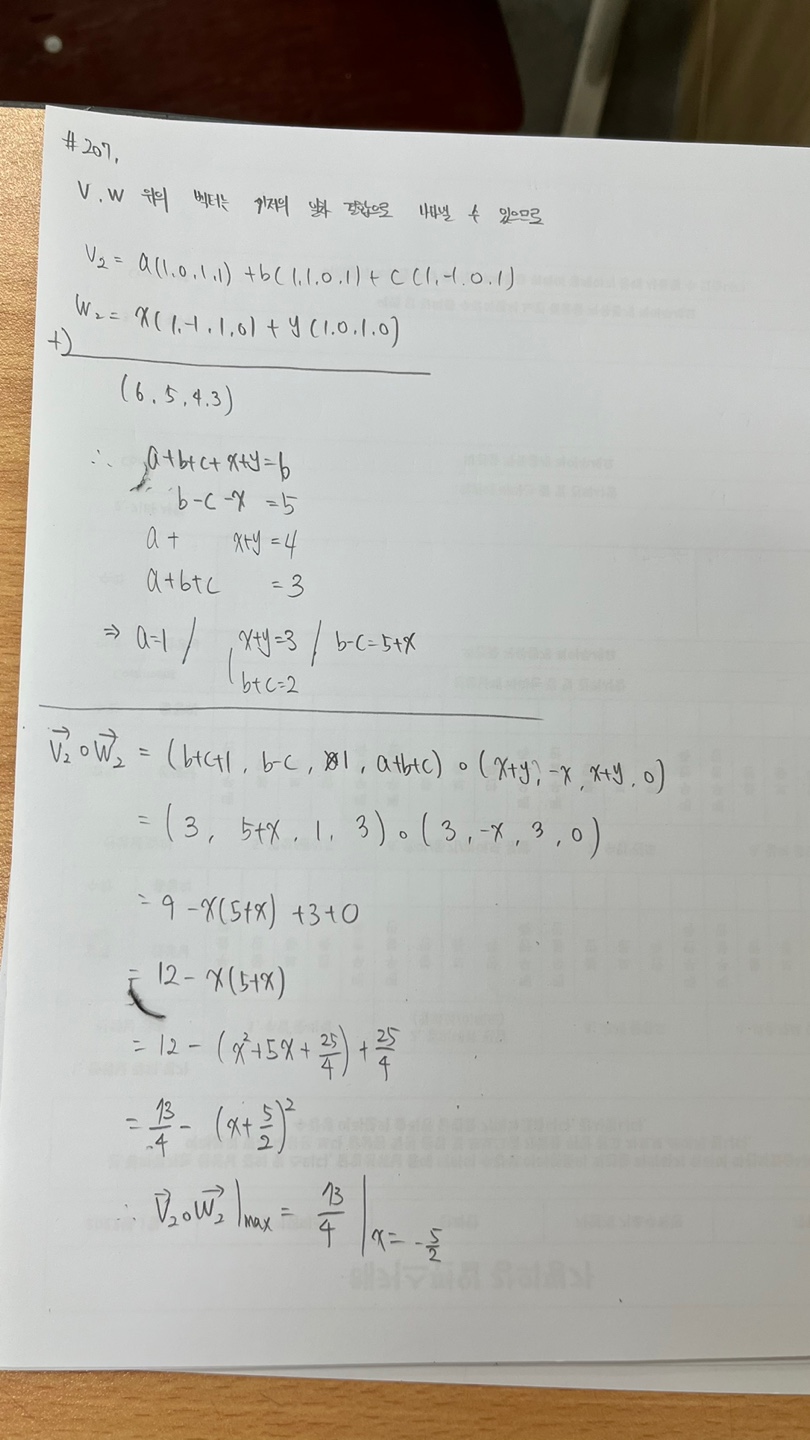 #207.
V, W 위의 벡터는 기저의 일차 결합으로 나타낼 수 있으므로
V₂ = a(1,0,1,1) + b(1,1,0,1) + c(1,-1,0,1)
W₂ = x(1,-1,1,0) + y(1,0,1,0)
+)
(6,5,4,3)
∴ a+b+c+x+y=6
b-c-x =5
a+ x+y=4
a+b+c =3
⇒ a=1 / x+y=3 / b-c=5+x
b+c=2
V₂∘W₂ = (b+c+1, b-c, 1, a+b+c)∘(x+y, -x, x+y, 0)
= (3, 5+x, 1, 3)∘(3, -x, 3, 0)
= 9 -x(5+x) +3+0
= 12 - x(5+x)
= 12 - (x²+5x+25/4)+25/4
= 73/4 - (x+5/2)²
∴ V₂∘W₂|max = 73/4 |x=-5/2